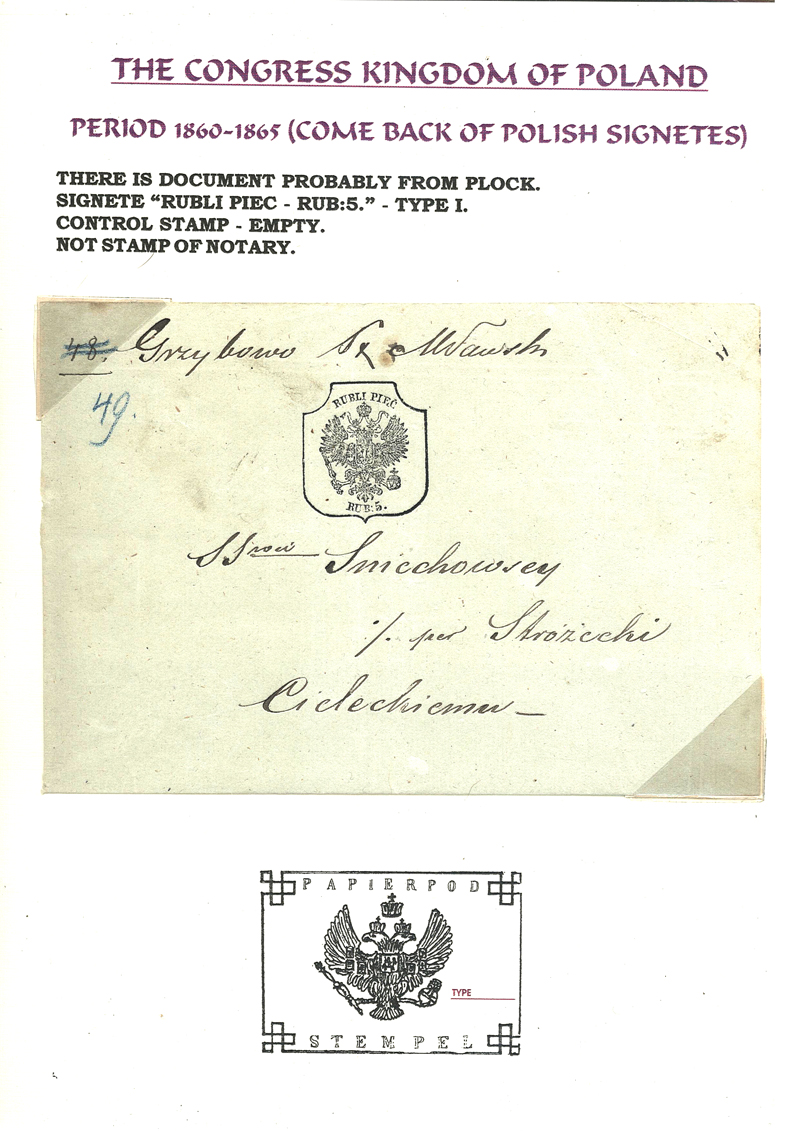 THE CONGRESS KINGDOM OF POLAND
PERIOD 1860-1865 (COME BACK OF POLISH SIGNETES)
THERE IS DOCUMENT PROBABLY FROM PLOCK.
SIGNETE “RUBLI PIEC - RUB:5.” - TYPE I.
CONTROL STAMP - EMPTY.
NOT STAMP OF NOTARY.
48. Grzybowo Mławski
49.
RUBLI PIEĆ
RUB:5.
SSrowie Sniechowscy
/. per Strożecki
Cieleckiemu
PAPIER POD
TYPE
STEMPEL